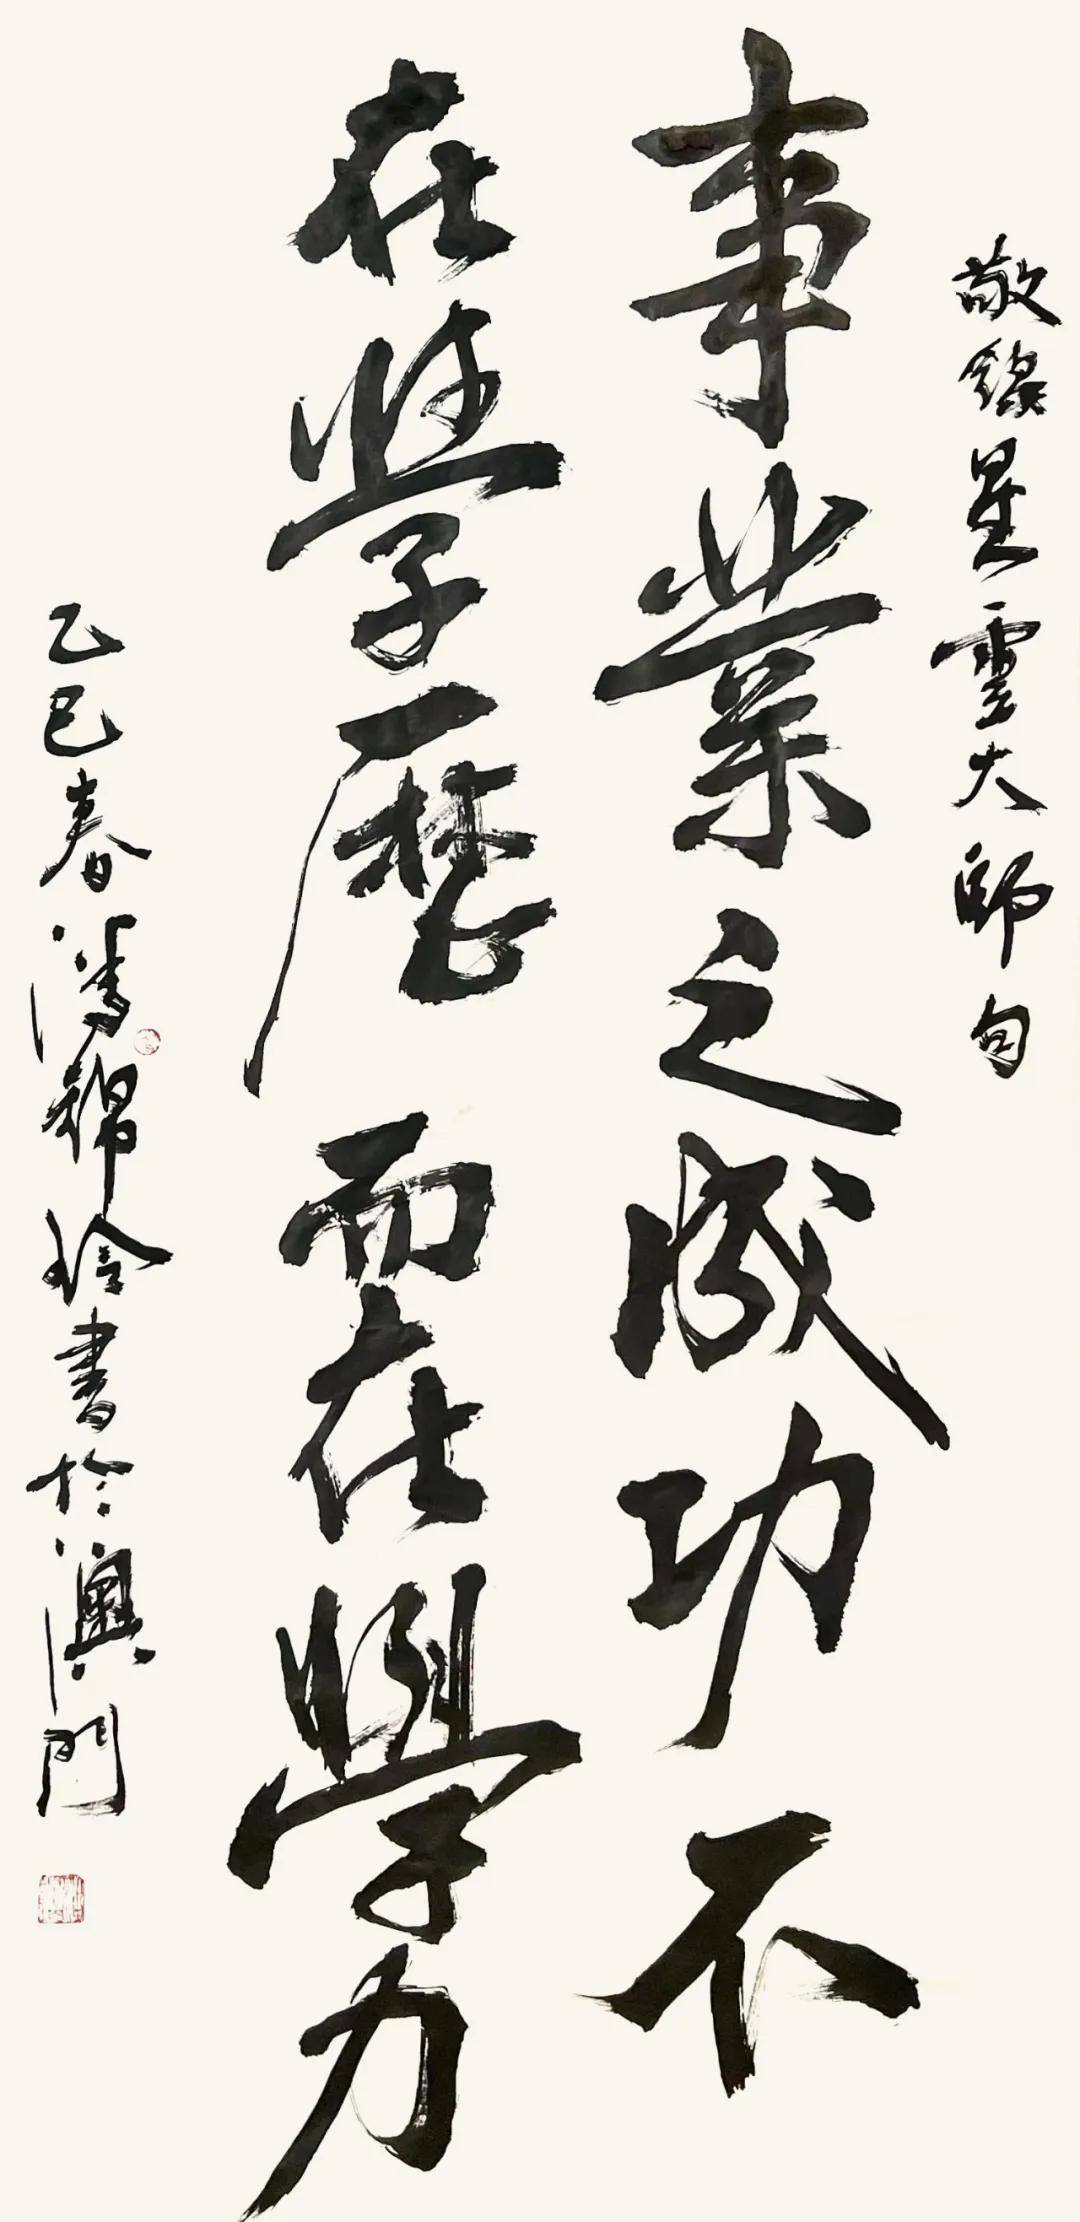 敬錄星雲大師句
事業之成功不
在学歷而在學力
乙巳春潘錦玲書於澳門